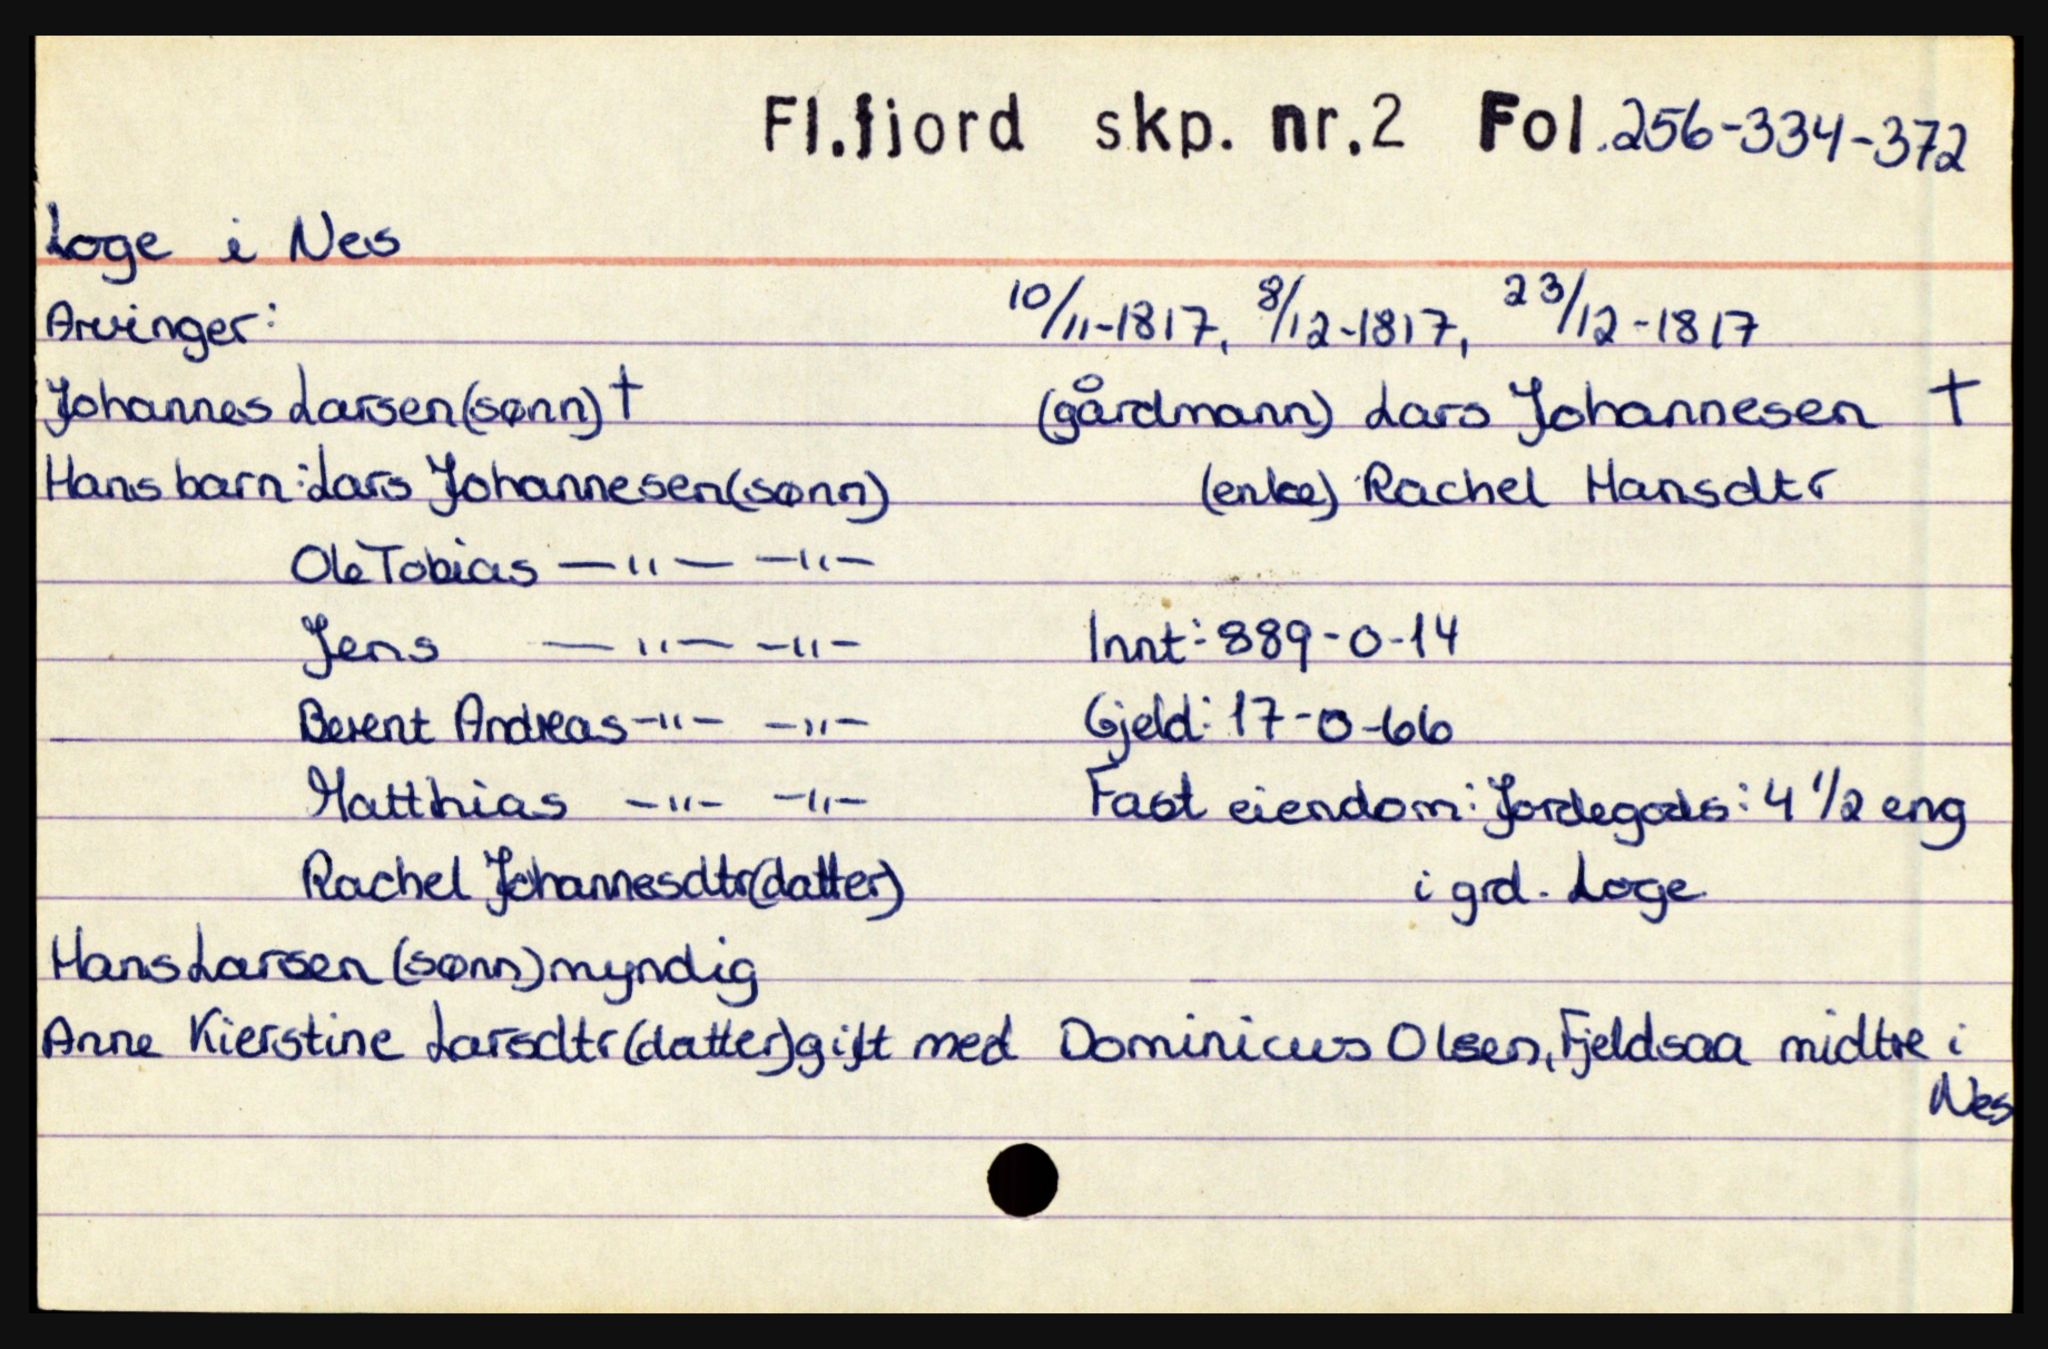 Fl.fjord skp. nr.2 Fol.256-334-372
Loge i Nes
Arvinger: 10/11-1817, 8/12-1817, 23/12-1817
Johannes Larsen(sønn) † (gårdmann) Lars Johannesen †
Hans barn: Lars Johannesen(sønn) (enke) Rachel Hansdtr
Ole Tobias —"— —"—
Jens —"— —"— Innt: 889-0-14
Berent Andreas —"— —"— Gjeld: 17-0-66
Matthias —"— —"— Fast eiendom: Jordegods: 4 1/2 eng
Rachel Johannesdtr(datter) i grd. Loge
Hans Larsen (sønn) myndig
Anne Kierstine Larsdtr(datter) gift med Dominicus Olsen, Fjeldsaa midtre i
Nes